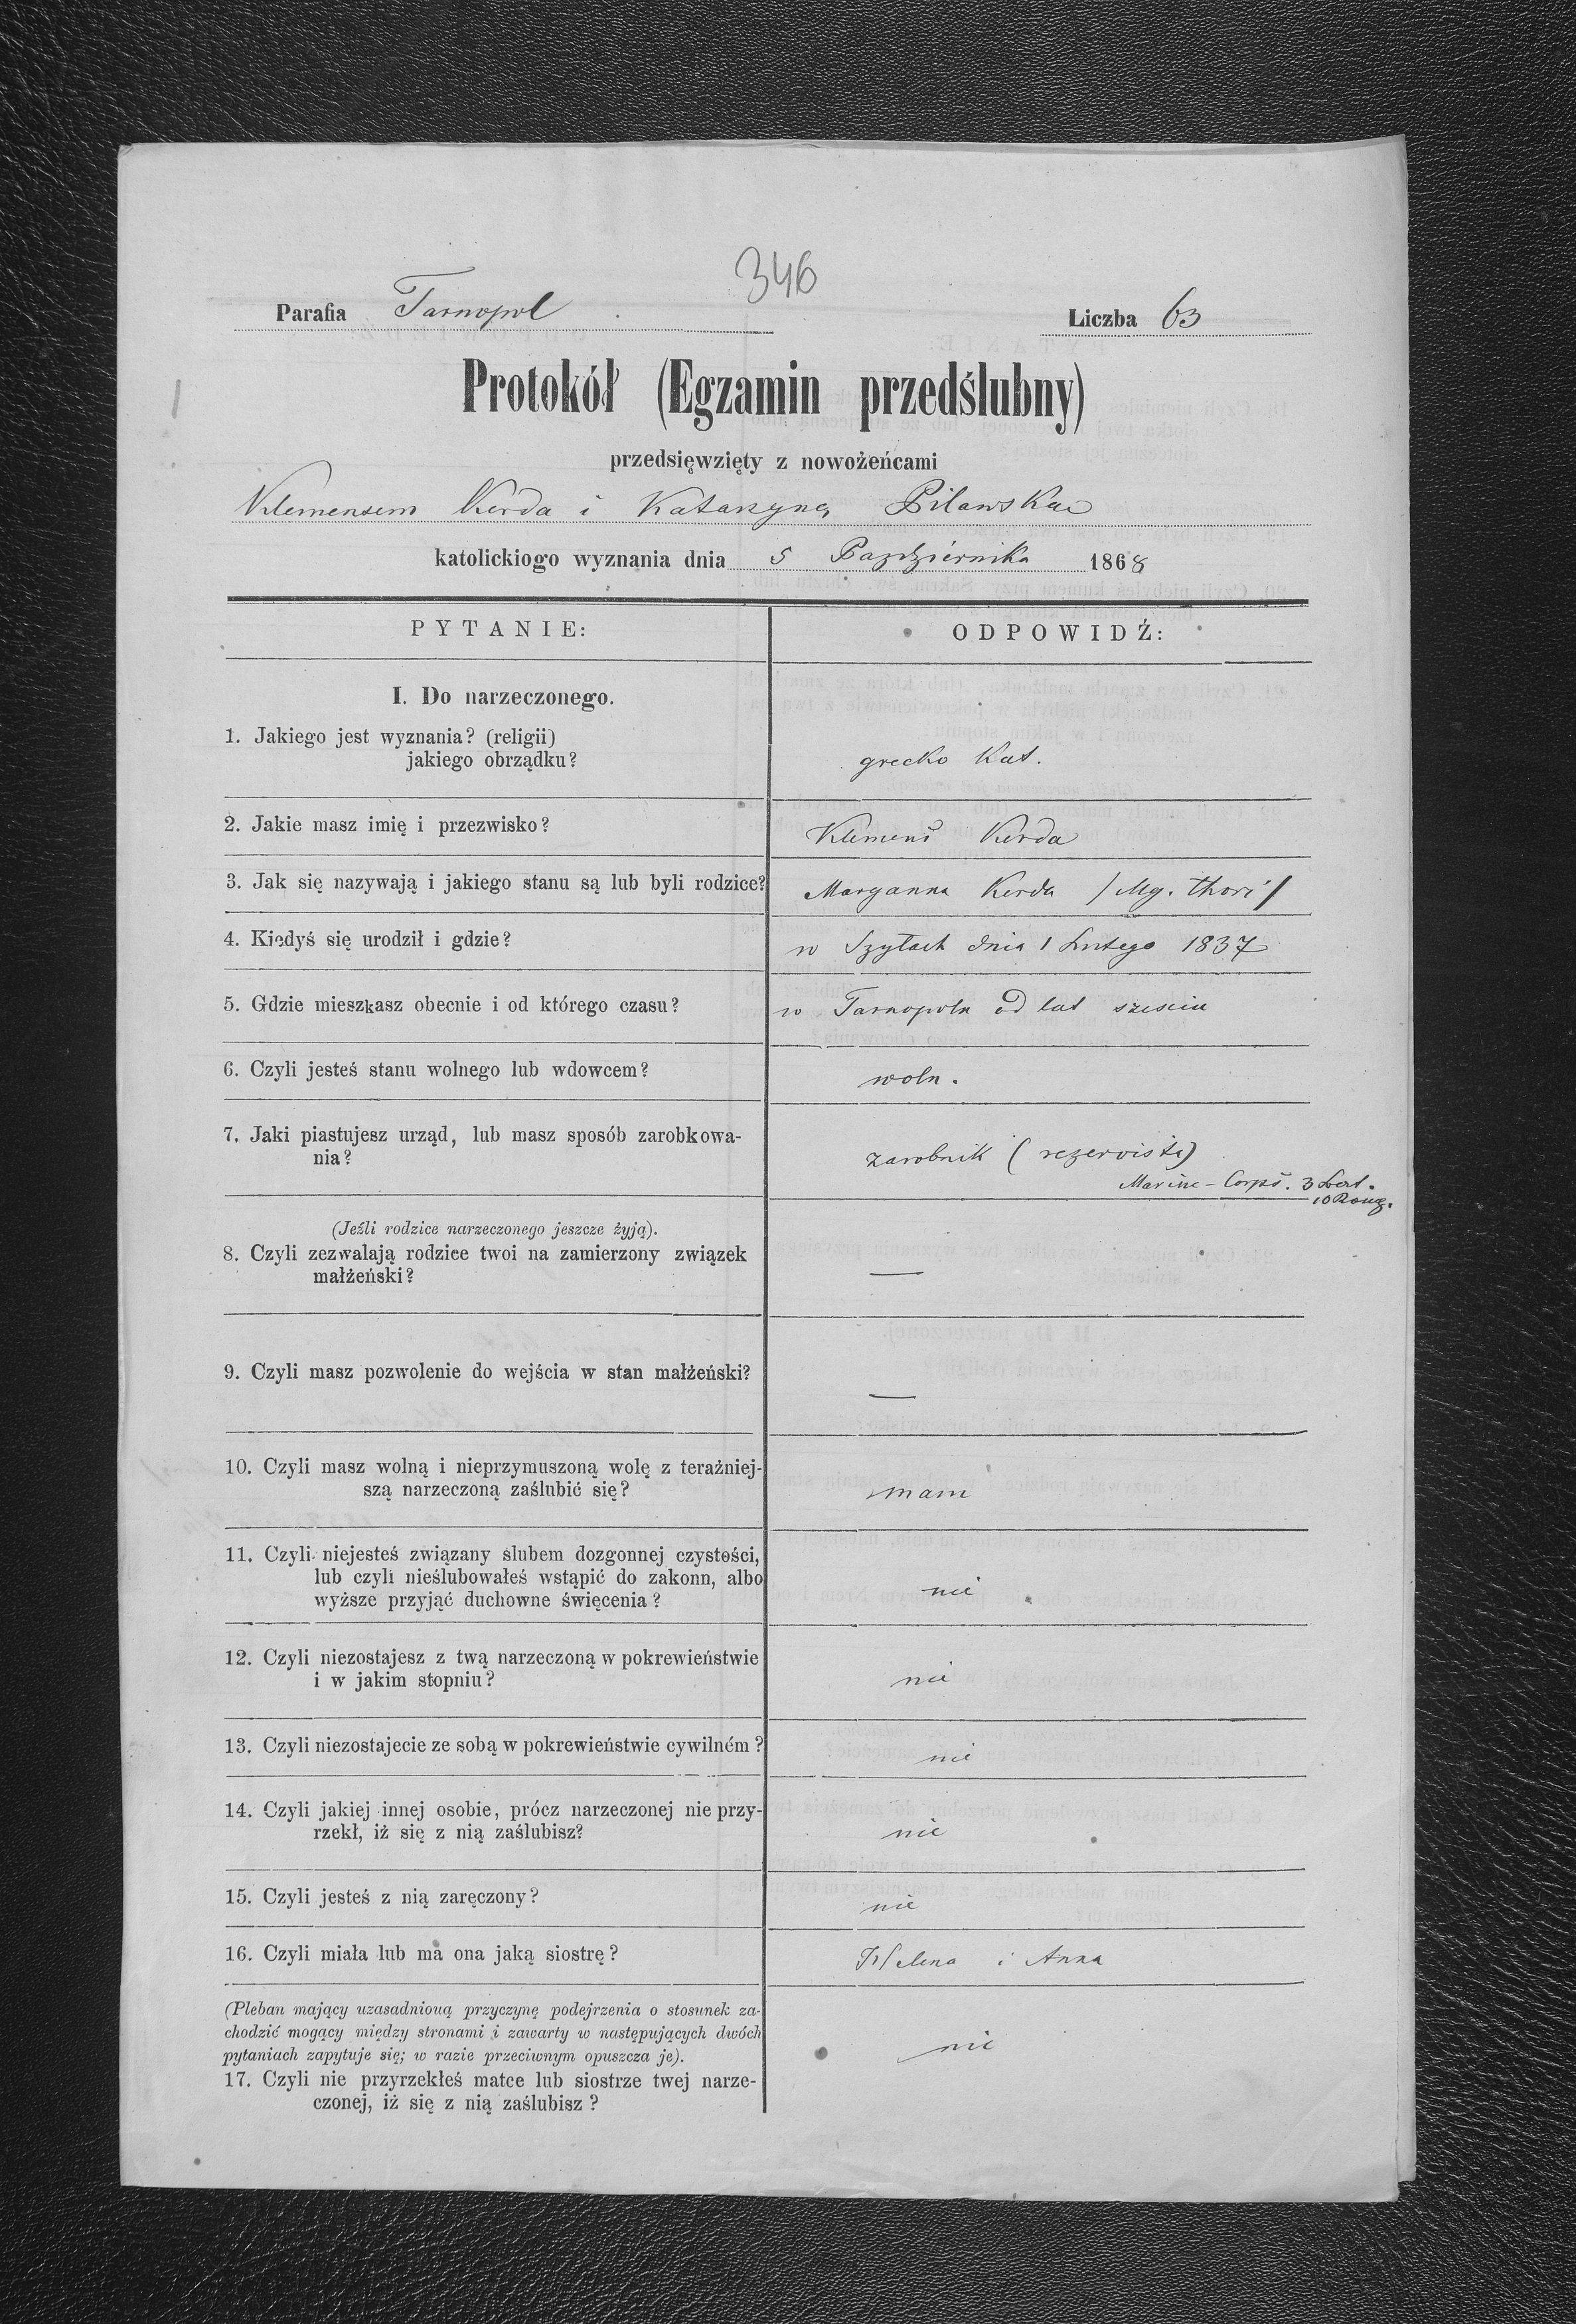 346
Parafia Tarnopol Liczba 63
Protokół (Egzamin przedślubny)
przedsięwzięty z nowożeńcami
Klemensem Kerda i Katarzyną Pilawską
katolickiogo wyznania dnia 5 Października 1868
PYTANIE: ODPOWIDŹ:
I. Do narzeczonego.
1. Jakiego jest wyznania? (religii)
jakiego obrządku? grecko Kat.
2. Jakie masz imię i przezwisko? Klemens Kerda
3. Jak się nazywają i jakiego stanu są lub byli rodzice? Maryanna Kerda / Mg. thori /
4. Kiedyś się urodził i gdzie? w Szyłach dnia 1 Lutego 1837
5. Gdzie mieszkasz obecnie i od którego czasu? w Tarnopolu od lat sześciu
6. Czyli jesteś stanu wolnego lub wdowcem? woln.
7. Jaki piastujesz urząd, lub masz sposób zarobkowa-
nia? zarobnik (rezervista)
Marine-Corps. 3
10
(Jeźli rodzice narzeczonego jeszcze żyją).
8. Czyli zezwalają rodzice twoi na zamierzony związek
małżeński? —
9. Czyli masz pozwolenie do wejścia w stan małżeński? —
10. Czyli masz wolną i nieprzymuszoną wolę z teraźniej-
szą narzeczoną zaślubić się? mam
11. Czyli niejesteś związany ślubem dozgonnej czystości,
lub czyli nieślubowałeś wstąpić do zakonn, albo
wyższe przyjąć duchowne święcenia? nie
12. Czyli niezostajesz z twą narzeczoną w pokrewieństwie
i w jakim stopniu? nie
13. Czyli niezostajecie ze sobą w pokrewieństwie cywilném? nie
14. Czyli jakiej innej osobie, prócz narzeczonej nie przy-
rzekł, iż się z nią zaślubisz? nie
15. Czyli jesteś z nią zaręczony? nie
16. Czyli miała lub ma ona jaką siostrę? Helena i Anna
(Pleban mający uzasadnioną przyczynę podejrzenia o stosunek za-
chodzić mogący między stronami i zawarty w następujących dwóch
pytaniach zapytuje się; w razie przeciwnym opuszcza je). nie
17. Czyli nie przyrzekłeś matce lub siostrze twej narze-
czonej, iż się z nią zaślubisz?